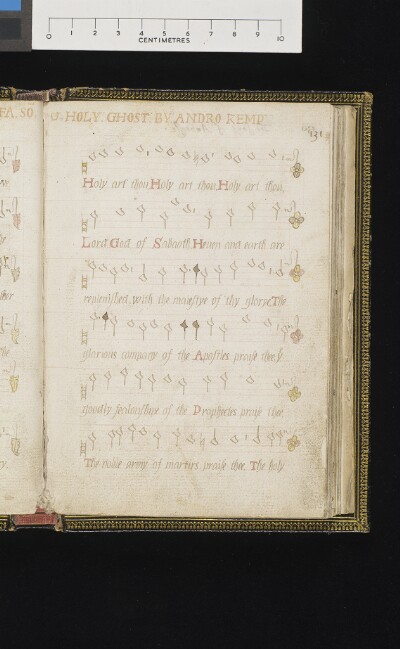 0 1 2 3 4 5 6 7 8 9 10
CENTIMETRES
FA. SO.
HOLY GHOST BY ANDRO KEMP
131
Holy art thou, Holy art thou, Holy art thou,
Lord God of Sabaoth Heuen and earth are
replenisshed with the maiestye of thy glorye. The
glorious company of the Apostles praise thee. Ye
goodly of the Prophetes prayse thee.
The noble army of martirs praise thee. The holy